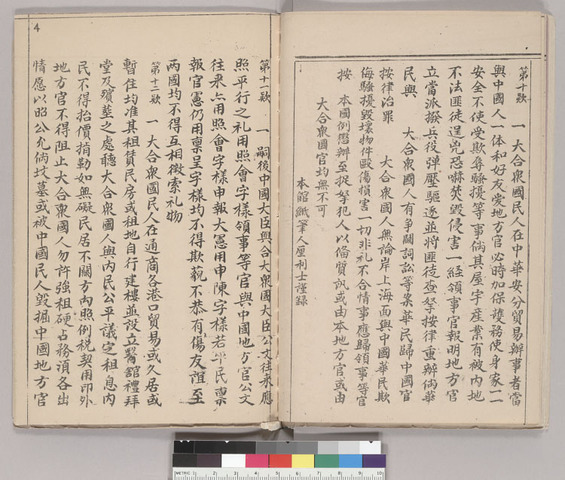 第十款 一 大合衆國民人在中華安分貿易辦事者當
與中國人一体和好友愛地方官必時加保護務使身家一
安全不使受欺辱騷擾等事倘其屋宇產業有被内地
不法匪徒逞兇恐嚇焚毀侵害一經領事官報明地方官
立當派撥兵役彈壓驅逐並將匪徒查拏按律重辦倘華
民與 大合衆國人有爭鬭詞訟等案華民歸中國官
按律治罪 大合衆國人無論岸上海面與中國華民欺
侮騷擾毀壞物件毆傷損害一切非礼不合情事應歸領事等官
按 本國例懲辦至捉拏犯人以備質訊或由本地方官或由
大合衆國官均無不可
本館 筆人 利士謹錄
4
第十一款 一 嗣後中國大臣與合大衆國大臣公文往來應
照平行之礼用照會字樣領事等官與中國地方官公文
往來亦用照會字樣申報大憲用申陳字樣若平民禀
報官憲仍用禀呈字樣均不得欺藐不恭有傷友誼至
兩國均不得互相徵索礼物
第十二款 一 大合衆國民人在通商各港口貿易或久居或
暫住均准其租賃民房或租地自行建樓並設立醫舘禮拜
堂及殯葬之處聽大合衆國人與内民公平議定租息内
民不得抬價掯勒如無礙民居不關方向照例税契用印外
地方官不得阻止大合衆國人勿許強租硬占務須各出
情愿以昭公允倘坟墓或被中國民人毀掘中國地方官